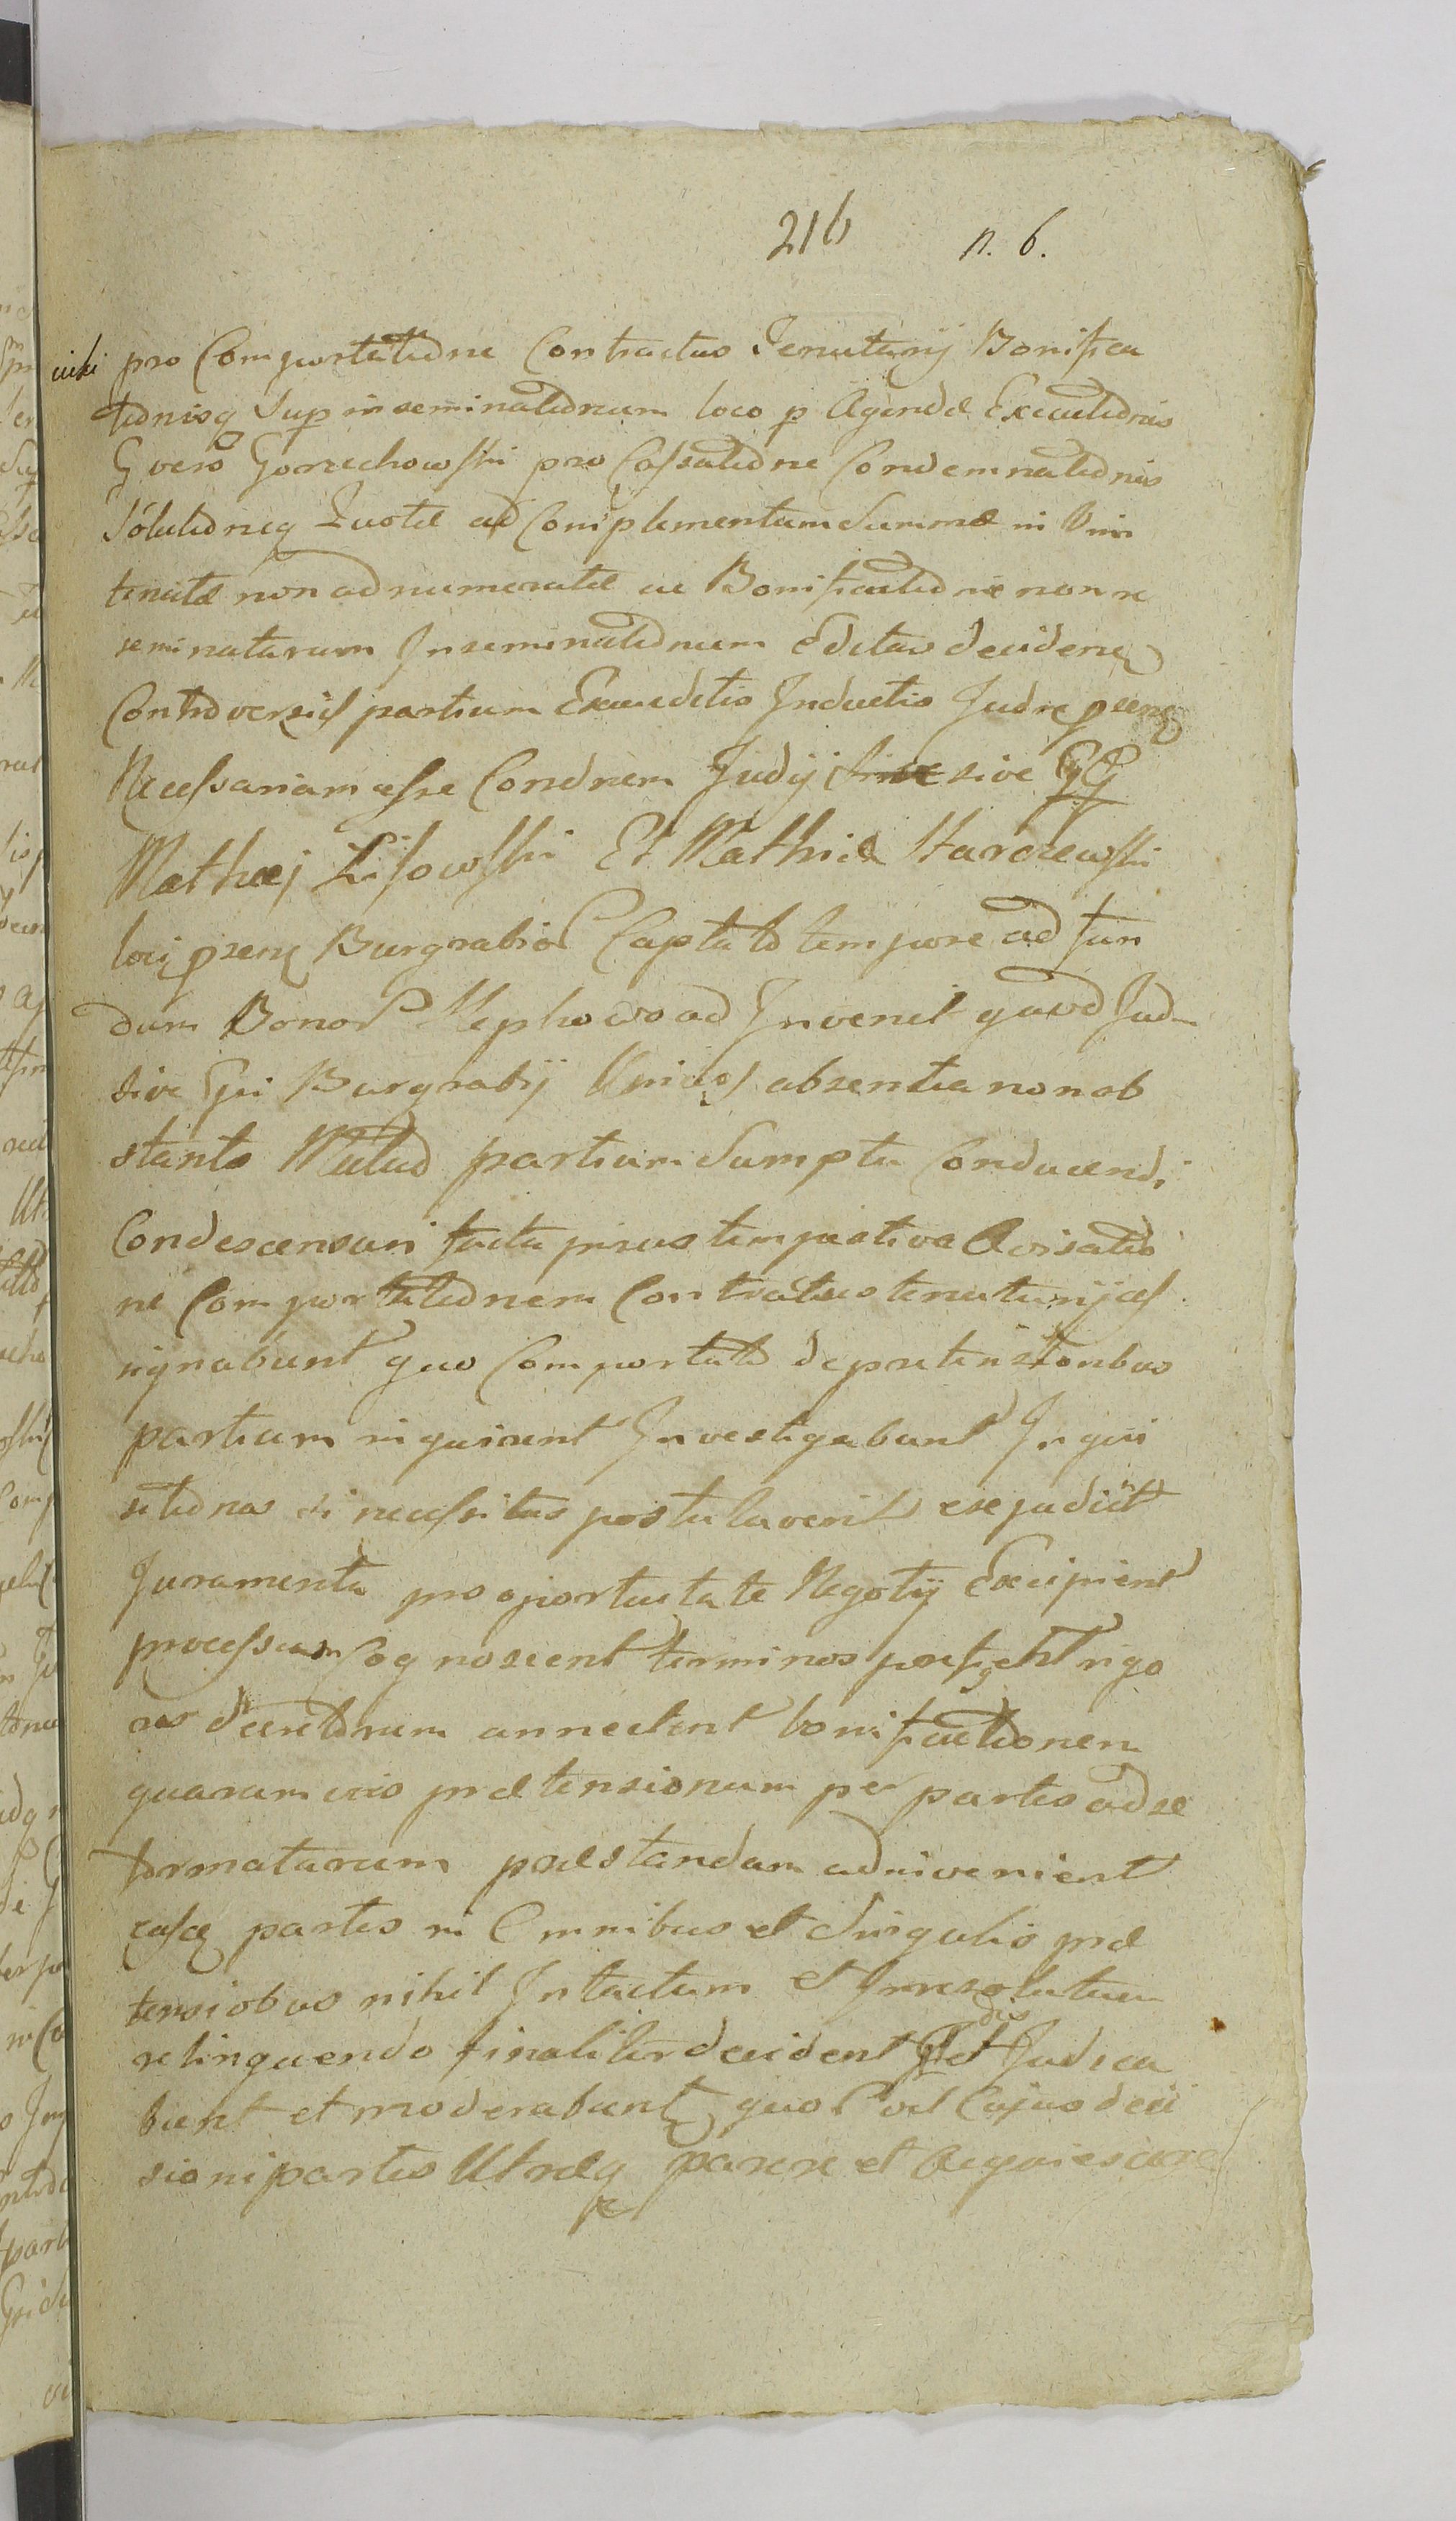 216 n. 6.
pro Comportatione Contractus Tenutarij Bonifica
tionisq Sup inseminationum loco p Agendæ Executionis
G vero Gorzechowski pro Cassatione Condemnationis
Solutioneq Quotæ ad Complementum Summæ in Vim
tenutæ non adnumeratæ ac Bonificatione non re
seminatarum Inseminationum Editas decidend
Controversiis partium Exauditis Inductis Jud præsens
Necessariam esse Condnem Judij sive GG
Mathæi Lisowski Et Mathiæ Harczewski
loci præsen Burgrabior Captato tempore ad fun
dum Bonor Klephowo ad Invenit quod Jud
sive Gsi Burgrabij Unius absentia non ob
stante Mutuo partium Sumptu Conducendi
Condescensuri facta prius tempestiva Avisatio
ne Comportationem Contractus tenutarij as
signabunt quo Comportato de prætensionibus
partium inquirent Investigabunt Inqui
sitiones si necessitas postulaverit expedient
Juramenta pro oportuitate Negotij Excipient
processum Cognoscent terminos præfigent rigo
res decretorum annectent bonificationem
quarumvis prætensionum per partes ad se
formatarum præstandam adinvenient
easq partes in Omnibus et Singulis præ
tensiobus nihil Intactum et Irresolutum
relinquendo finaliter decident dis Et Judica
bunt et moderabunt quor vel Cujus deci
sioni partes Utræq parere et Acquiescere